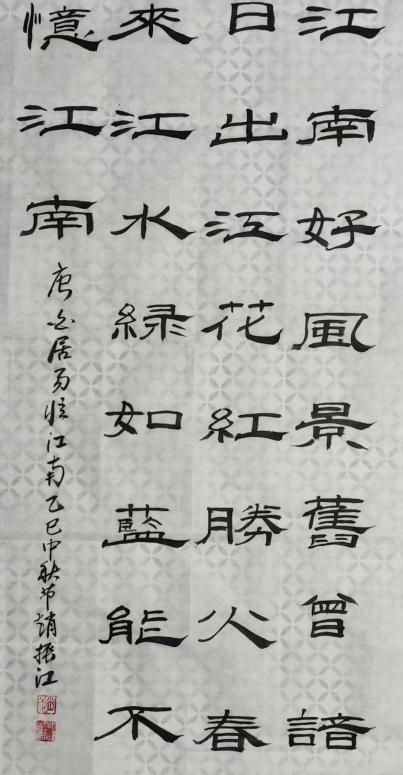 江南好風景舊曾諳
日出江花紅勝火春
來江水緑如藍能不
憶江南
唐白居易憶江南乙巳中秋節趙振江